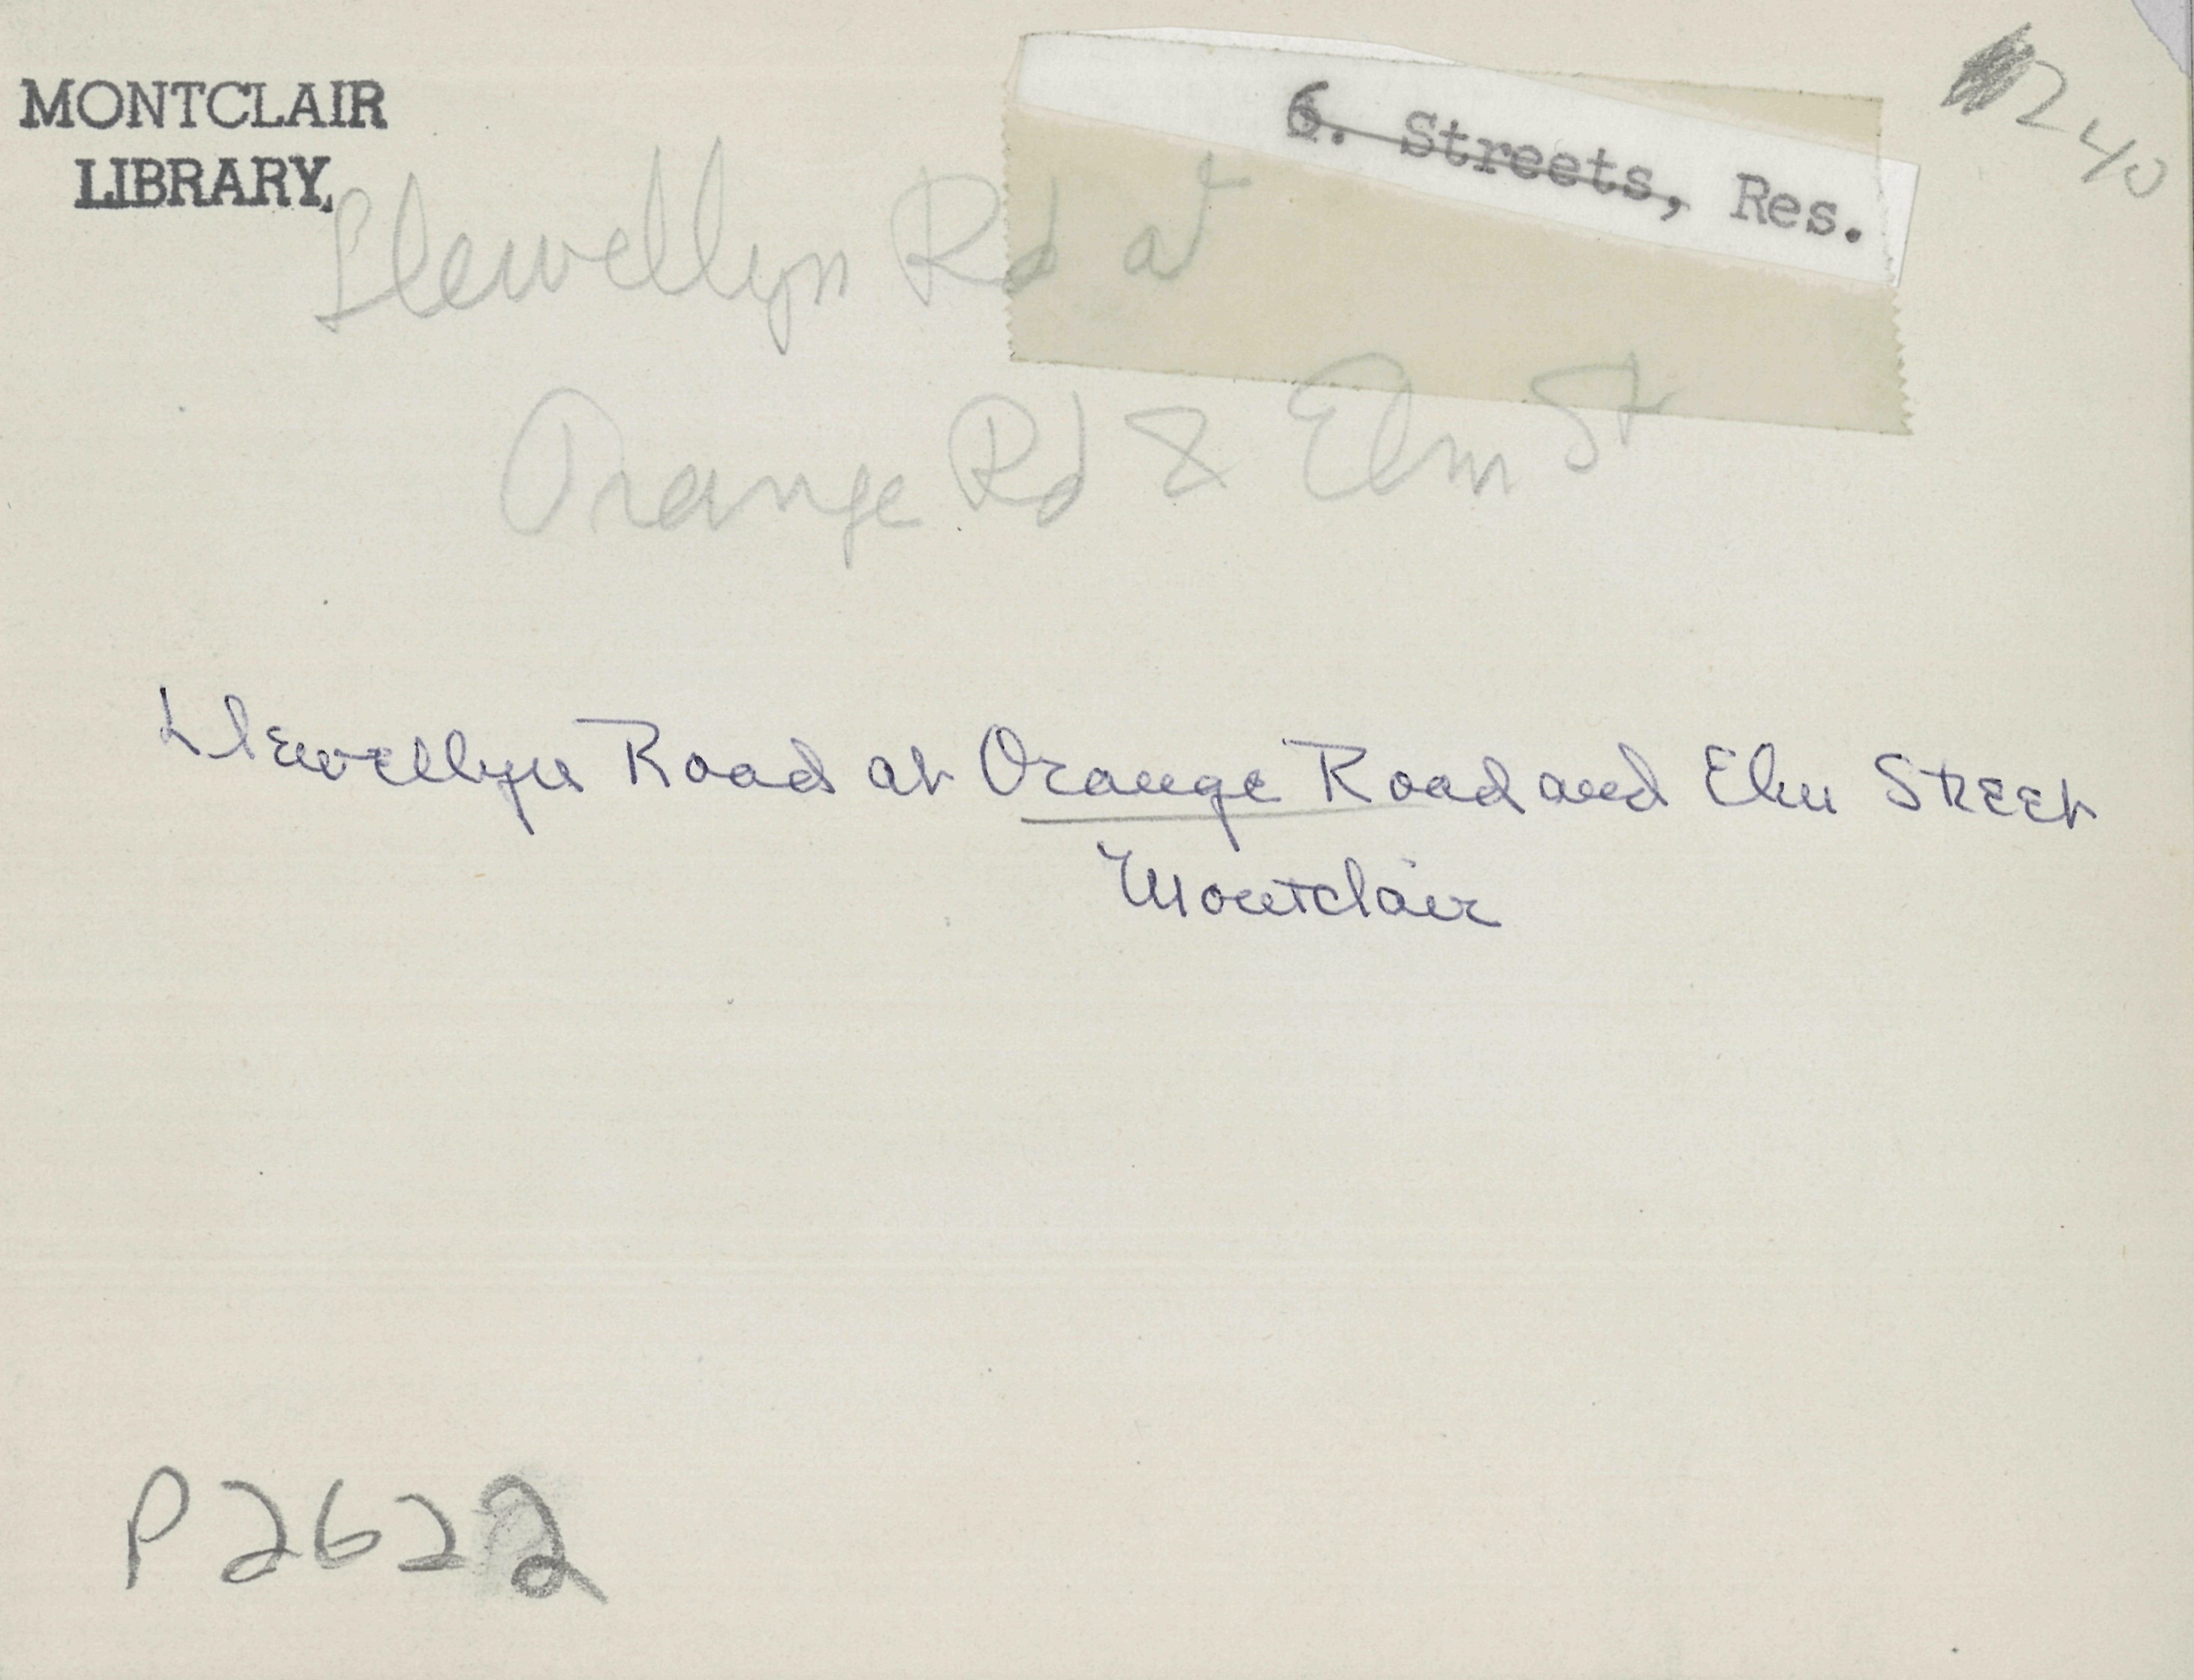 MONTCLAIR
LIBRARY
6. Streets, Res.
240
Llewellyn Rd at
Orange Rd & Elm St
Llewellyn Road at Orange Road and Elm Street
Montclair
P2622